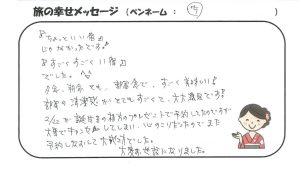 旅の幸せメッセージ (ペンネーム： )
"ちょっといい宿"
じゃなかったです!
"すごくすごくいい宿"
でした。^^
夕食、朝食とも、部屋食で、すごく美味しい!
部屋の清潔感がとてもすごくて、大大満足です!
2/12が誕生日の母へのプレゼントで予約したのですが
大雪でキャンセルしてしまい、心のこりだったのでまた
予約しなおして大成功でした。
大変お世話になりました。